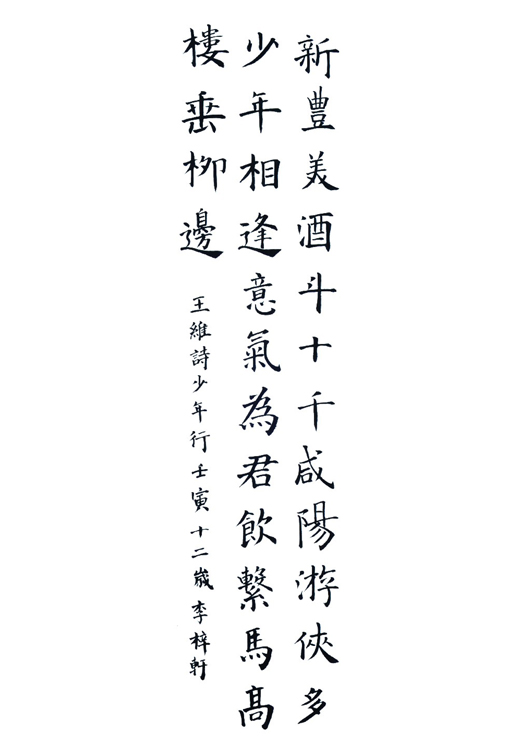 新豐美酒斗十千咸陽游俠多
少年相逢意氣為君飲繫馬高
樓垂柳邊
王維詩少年行壬寅十二歲李梓軒